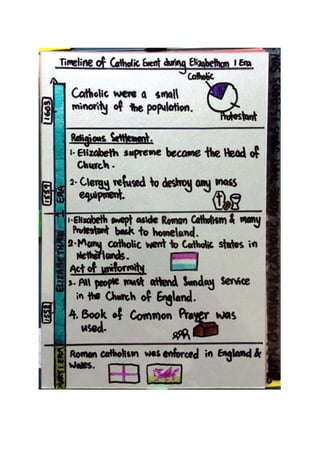 Timeline of Catholic Event during Elizabethan 1 Era
Catholic
Catholic were a small
minority of the population.
Protestant
1603
Religious Settlement.
1. Elizabeth supreme became the Head of
Church.
2. Clergy refused to destroy any mass
equipment.
1559
ELIZABETHAN 1 ERA
1. Elizabeth swept aside Roman Catholism & many
Protestant back to homeland.
2. Many catholic went to Catholic states in
Netherlands.
Act of uniformity
3. All people must attend Sunday Service
in the Church of England.
4. Book of Common Prayer was
used.
1558
MARY 1 ERA
Roman catholism was enforced in England &
Wales.